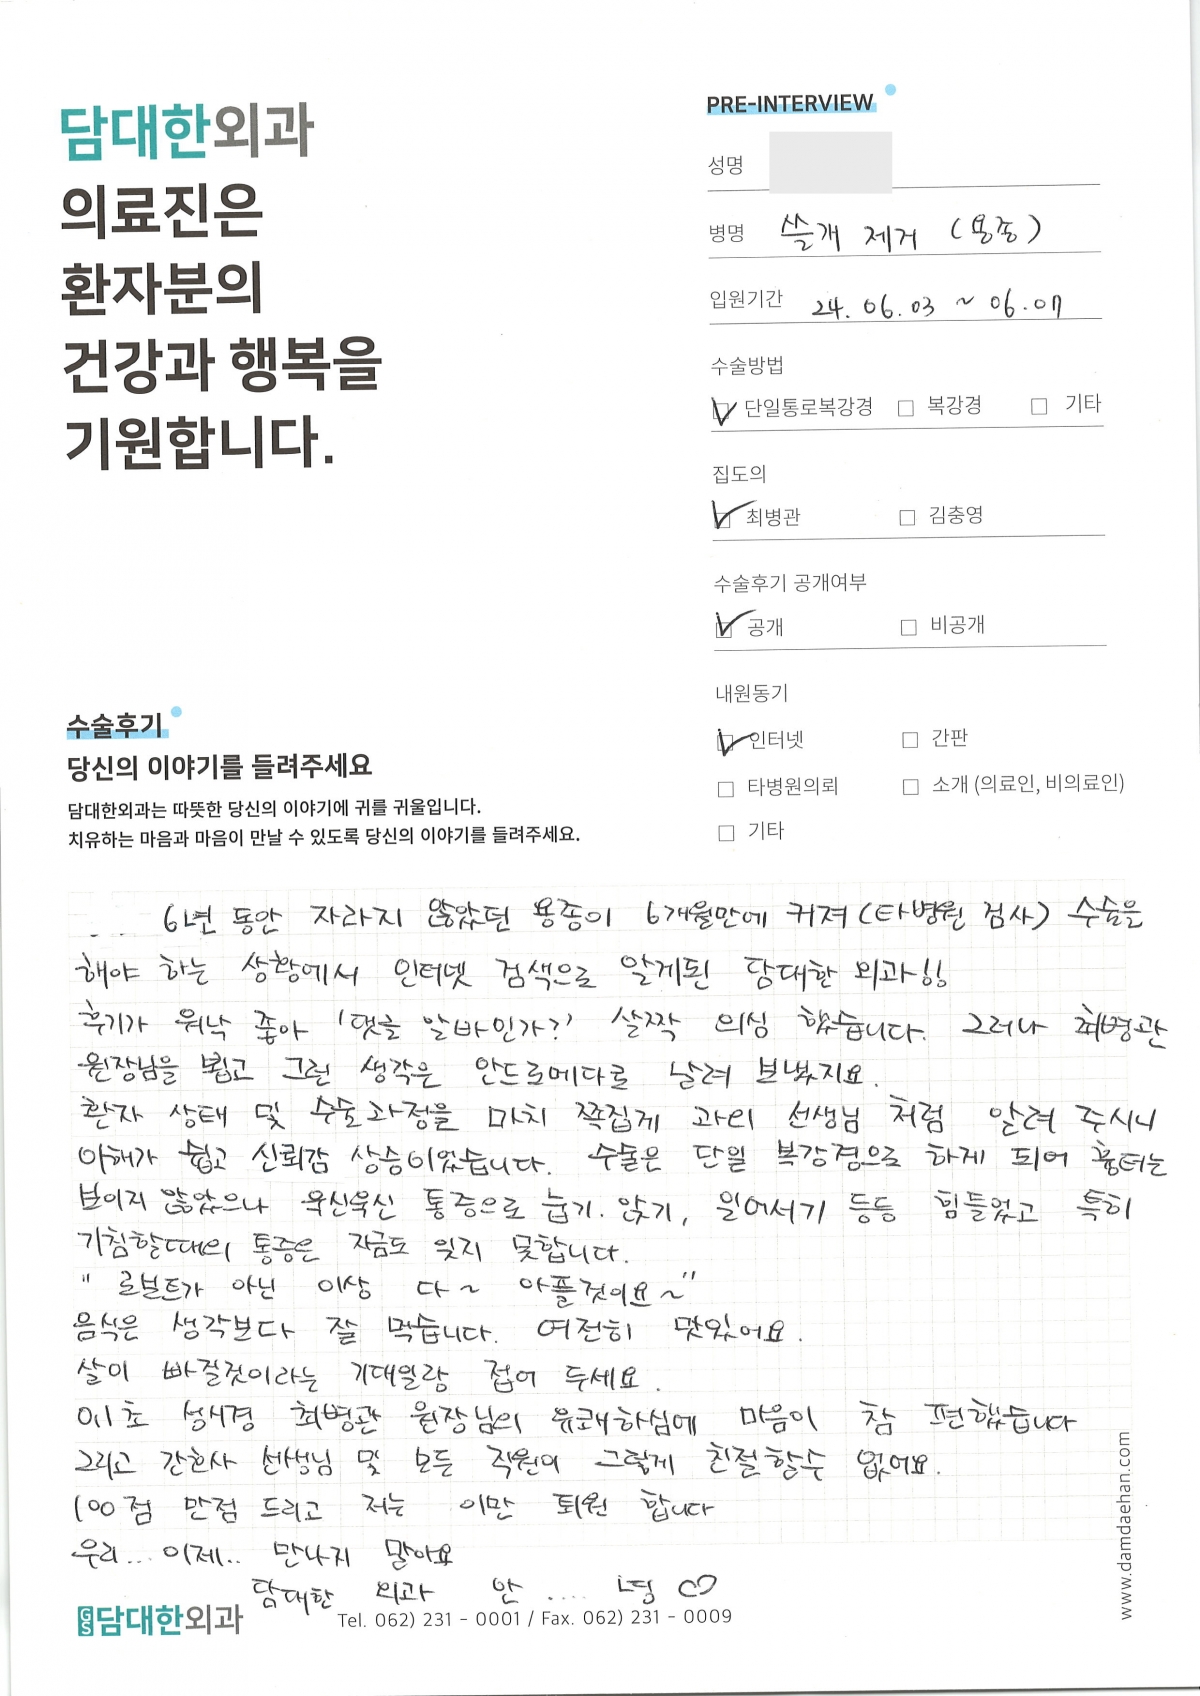 담대한외과
의료진은
환자분의
건강과 행복을
기원합니다.
PRE-INTERVIEW
성명
병명 쓸개 제거 (용종)
입원기간 24. 06. 03 ~ 06. 07
수술방법
단일통로복강경 복강경 기타
집도의
최병관 김충영
수술후기 공개여부
공개 비공개
내원동기
인터넷 간판
타병원의뢰 소개 (의료인, 비의료인)
기타
수술후기
당신의 이야기를 들려주세요
담대한외과는 따뜻한 당신의 이야기에 귀를 귀울입니다.
치유하는 마음과 마음이 만날 수 있도록 당신의 이야기를 들려주세요.
... 6년 동안 자라지 않았던 용종이 6개월만에 커져 (타병원 검사) 수술을
해야 하는 상황에서 인터넷 검색으로 알게된 담대한 외과!!
후기가 워낙 좋아 '댓글 알바인가?' 살짝 의심 했습니다. 그러나 최병관
원장님을 뵙고 그런 생각은 안드로메다로 날려 보냈지요.
환자 상태 및 수술과정을 마치 쪽집게 과외 선생님 처럼 알려 주시니
이해가 쉽고 신뢰감 상승이었습니다. 수술은 단일 복강경으로 하게 되어 흉터는
보이지 않았으나 욱신욱신 통증으로 눕기. 앉기, 일어서기 등등 힘들었고 특히
기침할때의 통증은 지금도 잊지 못합니다.
" 로보트가 아닌 이상 다~ 아플것이요~"
음식은 생각보다 잘 먹습니다. 여전히 맛있어요.
살이 빠질것이라는 기대일랑 접어 두세요.
0.1초 성시경 최병관 원장님의 유쾌하심에 마음이 참 편했습니다
그리고 간호사 선생님 및 모든 직원이 그렇게 친절할수 없어요.
100점 만점 드리고 저는 이만 퇴원 합니다
우리... 이제.. 만나지 말아요
담대한 외과 안 .... 녕 ♡
GS담대한외과 Tel. 062) 231 - 0001 / Fax. 062) 231 - 0009
www.damdaehan.com